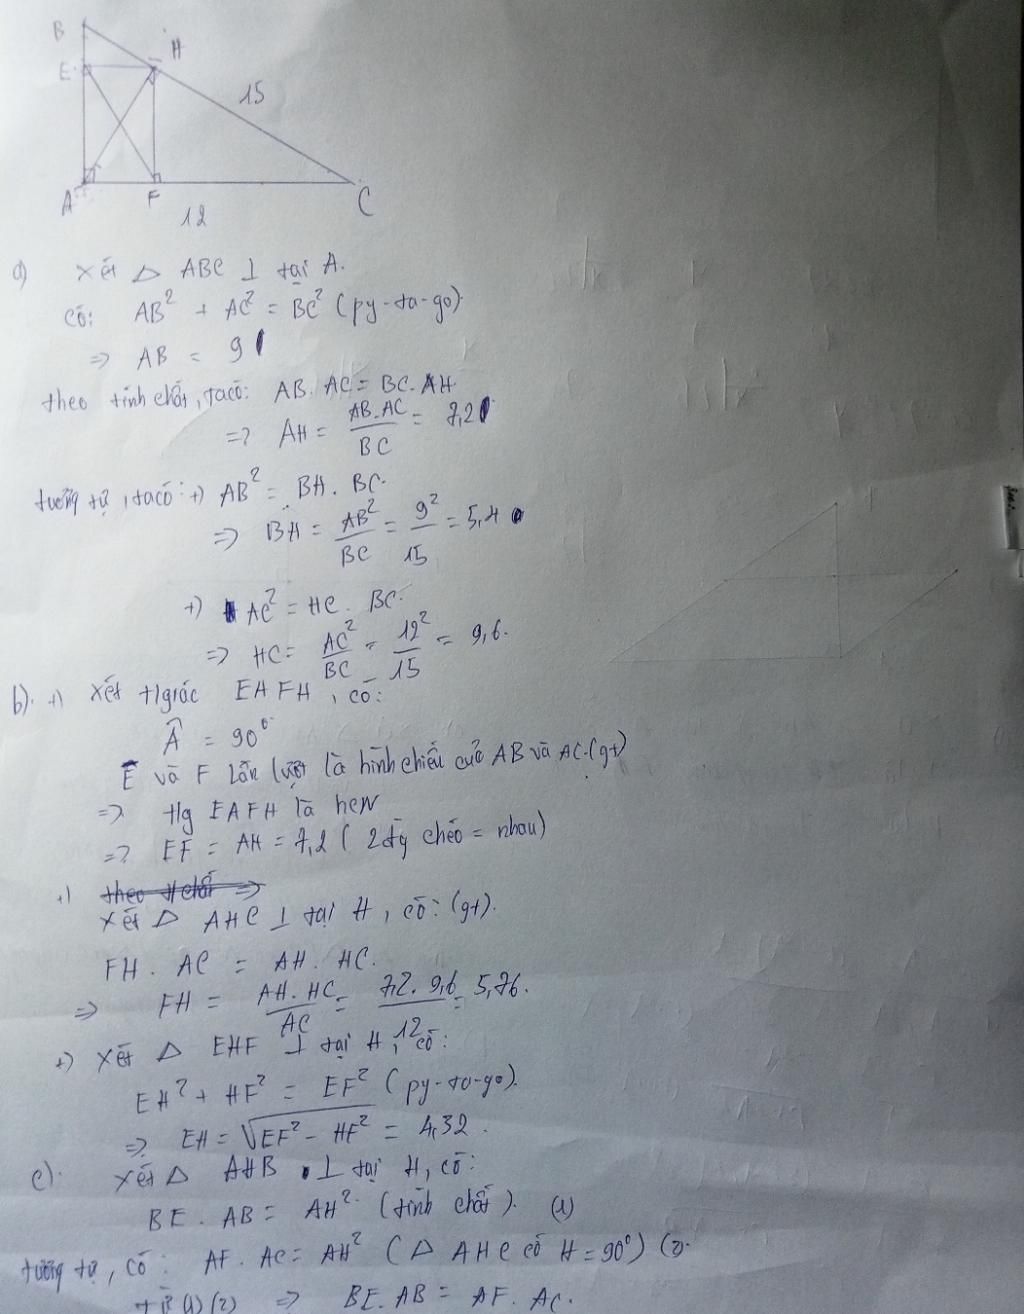 B
H
E
15
A
F
C
12
a) xét △ ABC ⊥ tại A.
có: AB² + AC² = BC² (py-ta-go)
=> AB = 9
theo tính chất, ta có: AB. AC = BC. AH
=> AH = AB.AC / BC = 7,2
tương tự, ta có: +) AB² = BH. BC.
=> BH = AB² / BC = 9² / 15 = 5,4
+) AC² = HC. BC.
=> HC = AC² / BC = 12² / 15 = 9,6.
b). +) xét t/giác EAFH, có:
Â = 90°
E và F lần lượt là hình chiếu của AB và AC. (gt)
=> t/g EAFH là hcn
=> EF = AH = 7,2 (2 đg chéo = nhau)
+) theo t/chất =>
xét △ AHC ⊥ tại H, có: (gt).
FH. AC = AH. HC.
=> FH = AH. HC / AC = 7,2. 9,6 / 12 = 5,76.
+) xét △ EHF ⊥ tại H, có:
EH² + HF² = EF² (py-ta-go).
=> EH = √EF² - HF² = 4,32.
c). xét △ AHB ⊥ tại H, có:
BE. AB = AH². (tính chất). (1)
tương tự, có: AF. AC = AH² (△ AHC có H = 90°) (2).
từ (1) (2) => BE. AB = AF. AC.